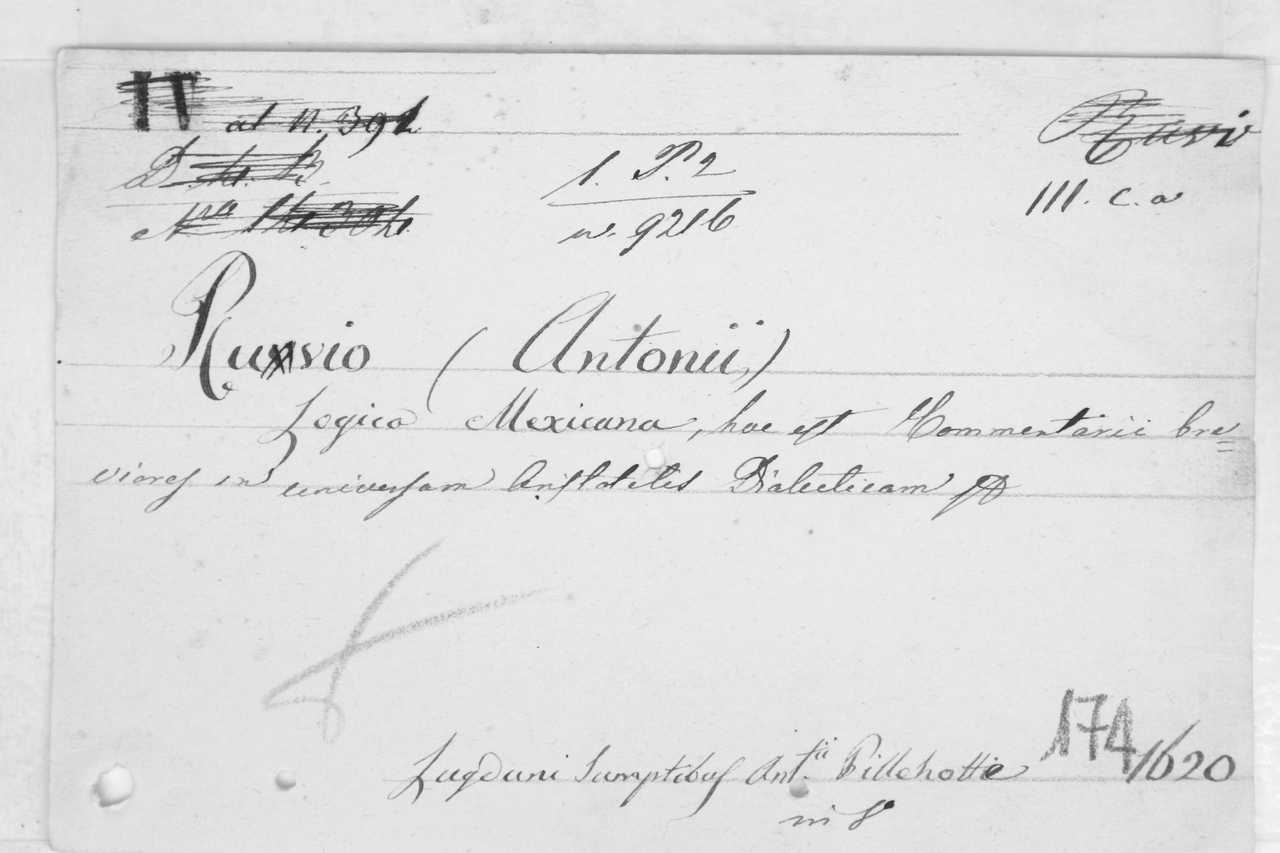 ad n. 392
1. P. 2
n. 9216
III. c. a
Ruvio (Antonii)
Logica Mexicana, hoc est Commentarii bre=
viores in universam Aristotelis Dialecticam
174
Lugduni Sumptibus Ant.ii Pillehotte 1620
in 8°